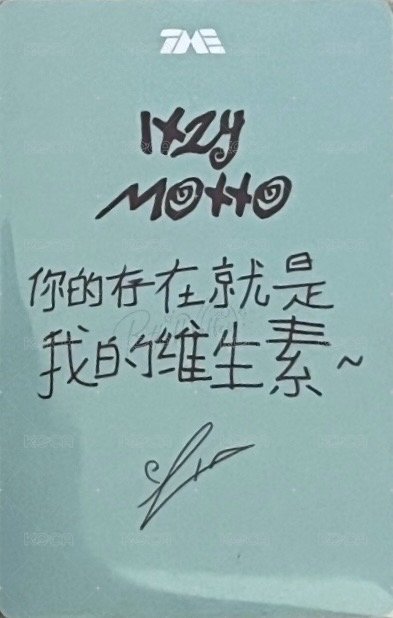 TME
ITZY
MOTTO
你的存在就是
我的维生素~